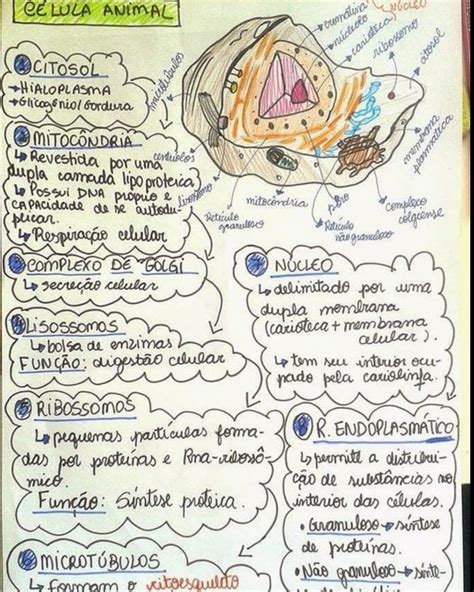 CÉLULA ANIMAL
cromatina
NÚCLEO
nucléolo
carioteca
ribossomo
citosol
microtúbulos
centríolos
lisossomo
Retículo
granuloso
mitocôndria
poro
Retículo
não granuloso
complexo
golgiense
membrana
plasmática
1 CITOSOL
↳ HIALOPLASMA
↳ Glicogênio/Gordura
2 MITOCÔNDRIA
↳ Revestida por uma
dupla camada lipoproteica
↳ Possui DNA próprio e
CAPACIDADE de se autodu-
plicar.
↳ Respiração celular
3 COMPLEXO DE GOLGI
↳ secreção celular
4 LISOSSOMOS
↳ bolsa de enzimas
FUNÇÃO: digestão celular
5 RIBOSSOMOS
↳ pequenas partículas forma-
das por proteínas e Rna-ribossô-
mico.
Função: Síntese proteica.
6 MICROTÚBULOS
↳ formam o citoesqueleto
7 NÚCLEO
↳ delimitado por uma
dupla membrana
(carioteca + membrana
celular).
↳ tem seu interior ocu-
pado pela cariolinfa.
8 R. ENDOPLASMÁTICO
↳ permite a distribui-
ção de substâncias no
interior das células.
• GRANULOSO → síntese
de proteínas.
• Não granuloso → sínte-